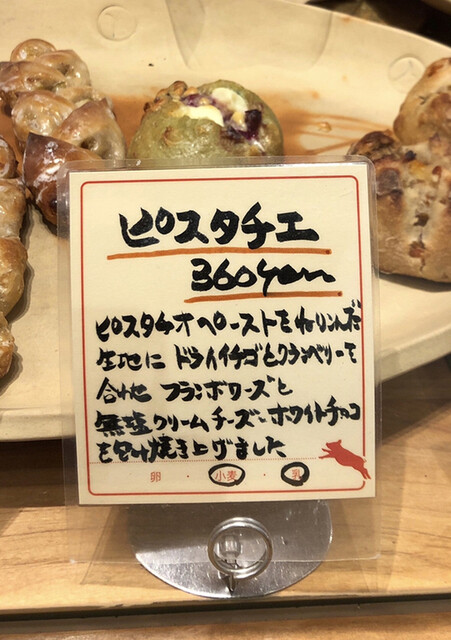 ピスタチエ
360yen
ピスタチオペーストをねりこんだ
生地に ドライイチゴとクランベリーを
合わせ フランボワーズと
無塩クリームチーズ・ホワイトチョコ
を包み焼き上げました
卵 ・ 小麦 ・ 乳